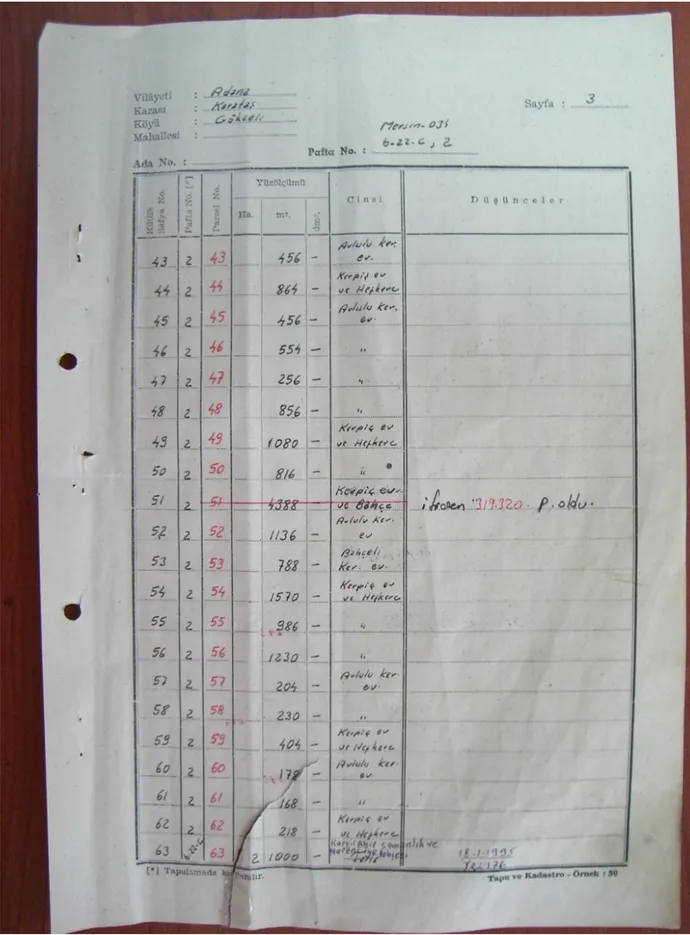 Vilâyeti : Adana
Kazası : Karataş
Köyü : Gökçeli
Mahallesi :
Sayfa : 3
Mersin-035
Ada No. :
Pafta No. : b-22-c, 2
Kütük Safya No. Pafta No. [*] Parsel No. Yüzölçümü Ha. m². dm². Cinsi Düşünceler
43 2 43 456 — Avlulu ker. ev.
44 2 44 864 — Kerpiç ev ve Hefkere
45 2 45 456 — Avlulu ker. ev.
46 2 46 554 — "
47 2 47 256 — "
48 2 48 856 — "
49 2 49 1080 — Kerpiç ev ve Hefkere
50 2 50 816 — "
51 2 51 4388 — Kerpiç ev ve Bahçe ifrazen 319.320. P. oldu.
52 2 52 1136 — Avlulu ker. ev
53 2 53 788 — Bahçeli Ker. ev.
54 2 54 1570 — Kerpiç ev ve Hefkere
55 2 55 986 — "
56 2 56 1230 — "
57 2 57 204 — Avlulu ker. ev.
58 2 58 230 — "
59 2 59 404 — Kerpiç ev ve Hefkere
60 2 60 178 — Avlulu ker. ev.
61 2 61 168 — "
62 2 62 218 — Kerpiç ev ve Hefkere
63 b-22-c 63 2 1000 — samanlık ve 18-1-1995
Yev 176
[*] Tapulamada
Tapu ve Kadastro - Örnek : 30